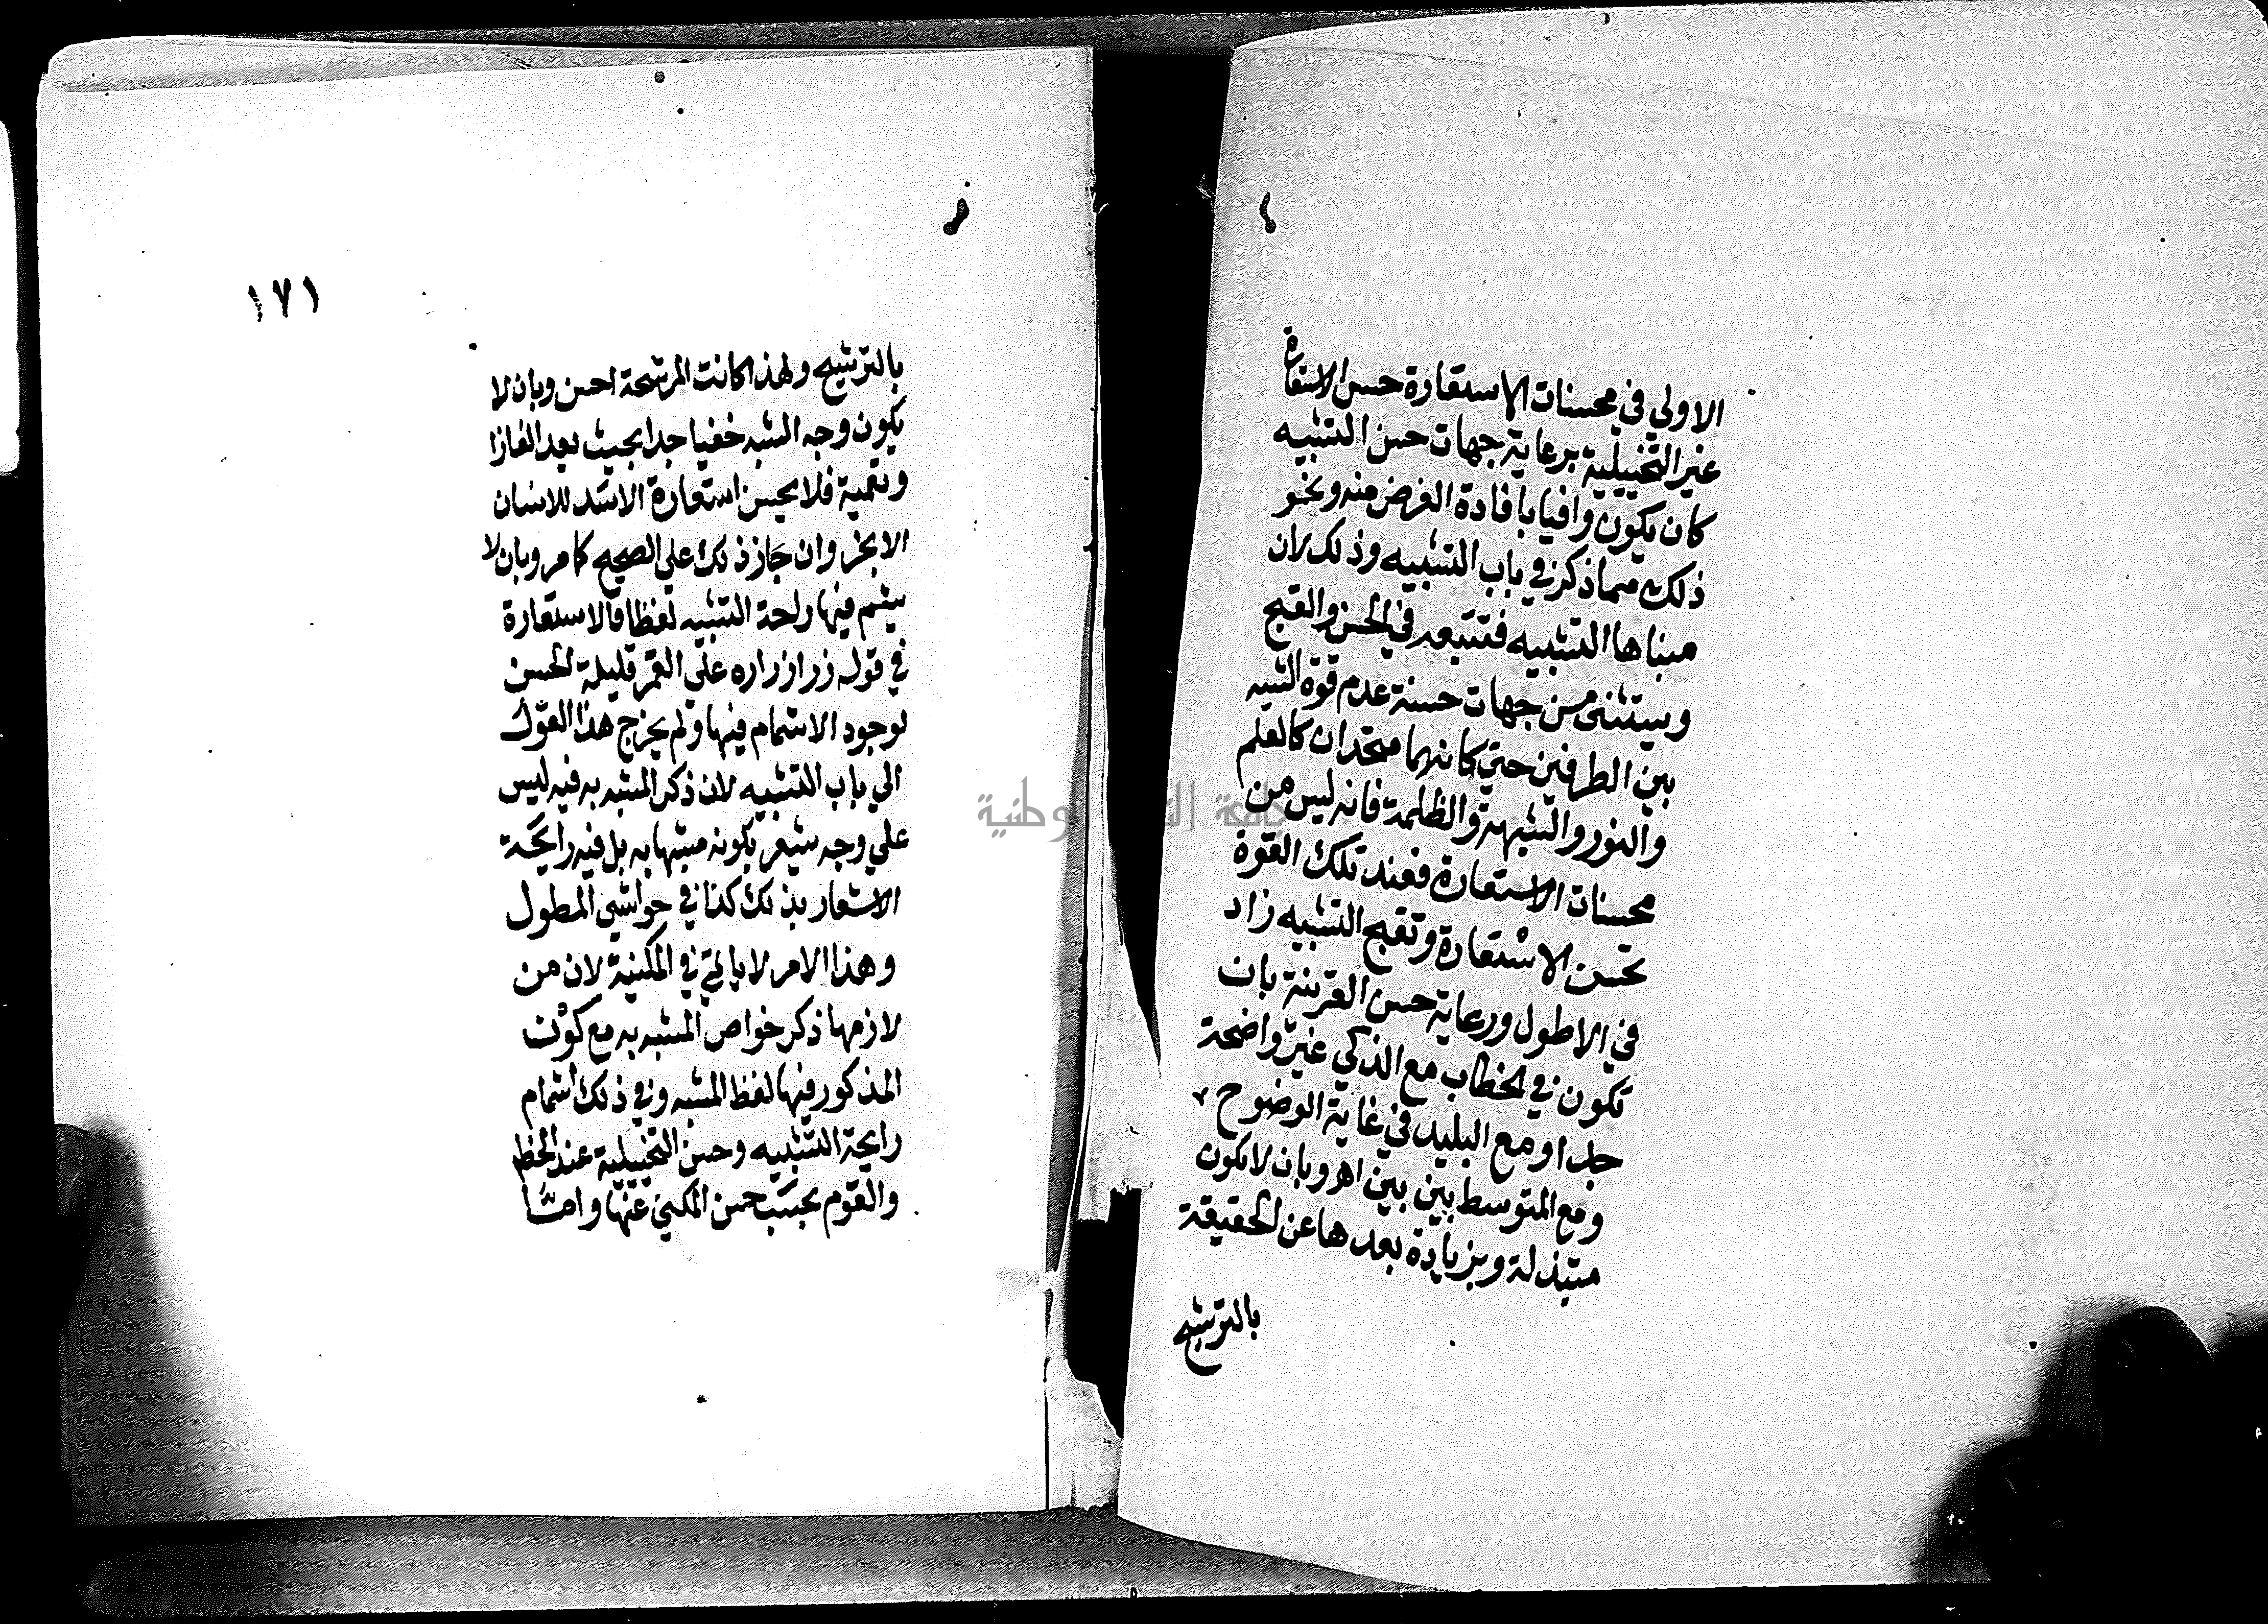 الاولي في محسنات الاستعارة حسن الاستعارة
غير التخييلية برعاية جهات حسن التشبيه
كان يكون وافيا بافادة الغرض منه ونحو
ذلك مما ذكر في باب التشبيه وذلك لان
مبناها التشبيه فتتبعه في الحسن والقبح
ويستثنى من جهات حسنة عدم قوة الشبه
بين الطرفين حتي كانهما متحدان كالعلم
والنور والشبهة والظلمة فانه ليس من
محسنات الاستعارة فعند تلك القوة
تحسن الاستعارة وتقبح التشبيه زاد
في الاطول ورعاية حسن القرينة بان
تكون في الخطاب مع الذكي غير واضحة
جدا ومع البليد في غاية الوضوح
ومع المتوسط بين بين اهـ وبان لا يكون
مبتذلة وبزيادة بعدها عن الحقيقة
بالترشيح
١٧١
بالترشيح ولهذا كانت المرشحة احسن وبان لا
يكون وجه الشبه خفيا جدا بحيث يعد الغازا
وتعمية فلا يحسن استعارة الاسد للانسان
الابخر وان جاز ذلك علي الصحيح كما مر وبان لا
يشم فيها رايحة التشبيه لفظا فالاستعارة
في قوله زر ازراره على القمر قليلة الحسن
لوجود الاشمام فيها ولم يخرج هذا القول
الي باب التشبيه لان ذكر المشبه به فيه ليس
علي وجه يشعر بكونه مشبها به بل فيه رايحة
الاشعار بذلك كذا في حواشي المطول
وهذا الامر لا ياتي في المكنية لان من
لازمها ذكر خواص المشبه به مع كون
المذكور فيها لفظ المشبه وفي ذلك اشمام
رايحة التشبيه وحسن التخييلية عند الخط
والقوم بحسب حسن المكني عنها وامـا
جامعة الوطنية